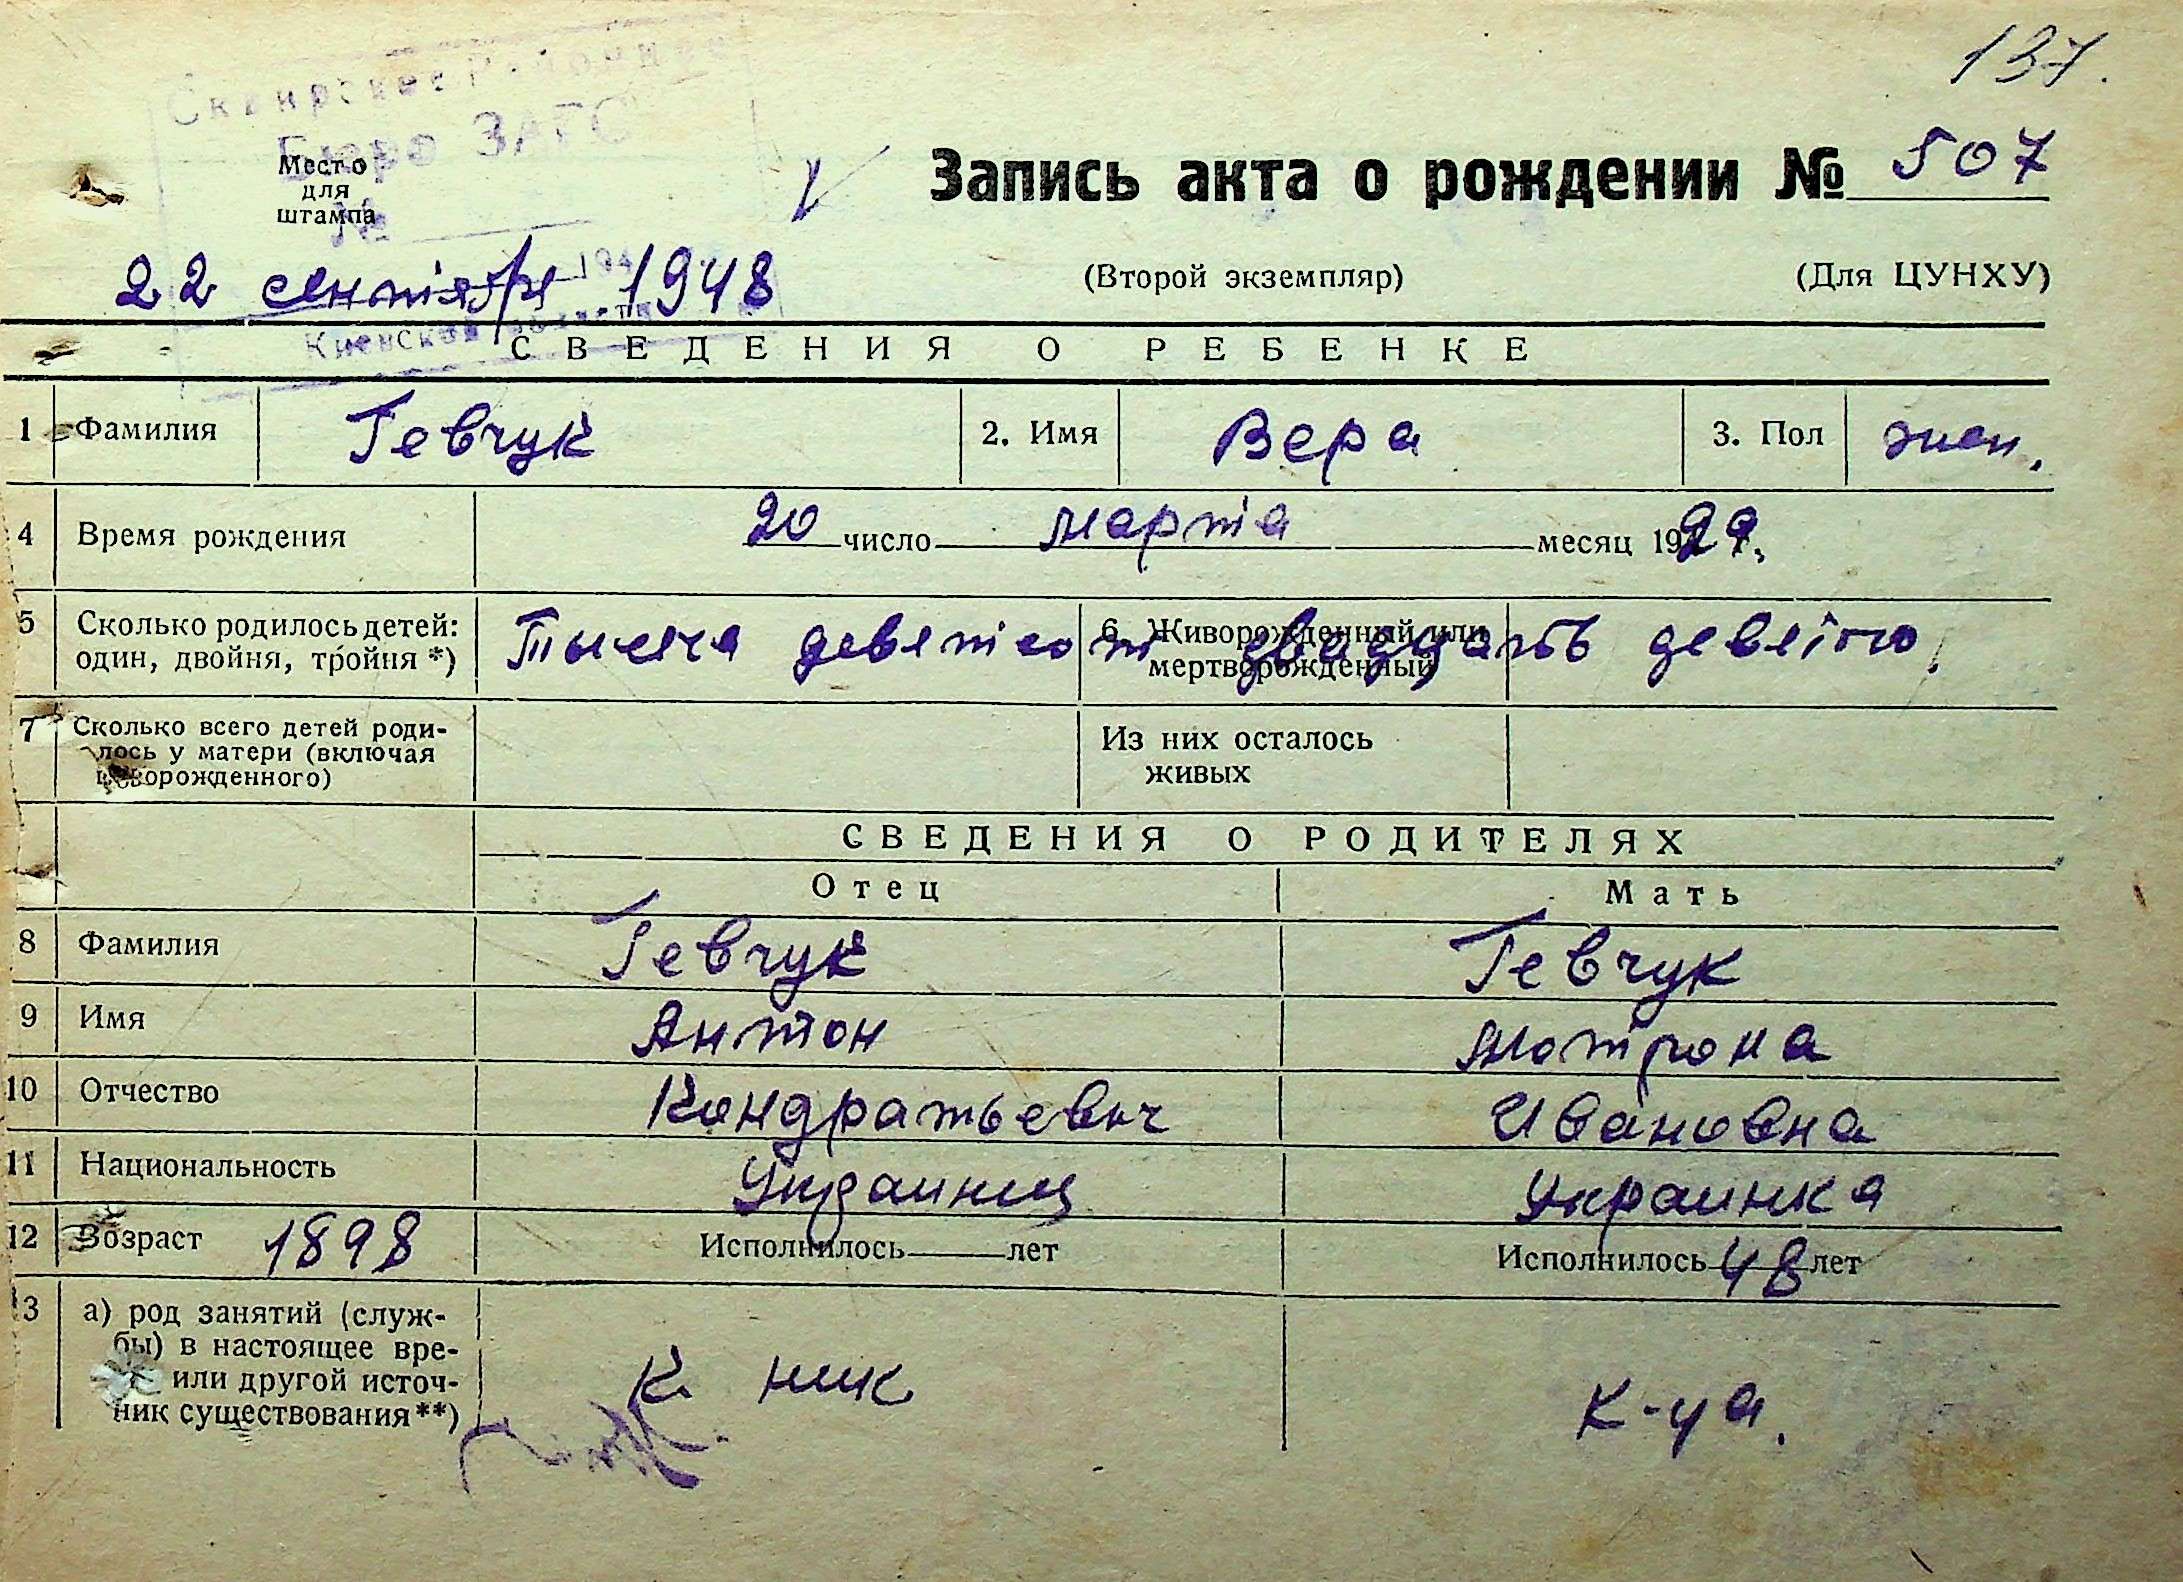 137.
Сквирское Районное
Бюро ЗАГС
Место
для
штампа
№
Запись акта о рождении № 507
22 сентября 1948
194
(Второй экземпляр) (Для ЦУНХУ)
Киевской области
СВЕДЕНИЯ О РЕБЕНКЕ
1 Фамилия Гевчук 2. Имя Вера 3. Пол жен.
4 Время рождения 20 число марта месяц 1929.
5 Сколько родилось детей: 6. Живорожденный или
один, двойня, тройня *) мертворожденный
Тысяча девятсот двадцать девятого.
7 Сколько всего детей роди- Из них осталось
лось у матери (включая живых
новорожденного)
СВЕДЕНИЯ О РОДИТЕЛЯХ
Отец Мать
8 Фамилия Гевчук Гевчук
9 Имя Антон Мотрона
10 Отчество Кондратьевич Ивановна
11 Национальность Украинец Украинка
12 Возраст 1898 Исполнилось лет Исполнилось 48 лет
13 а) род занятий (служ-
бы) в настоящее вре-
или другой источ- К ник
ник существования **) К-ца.